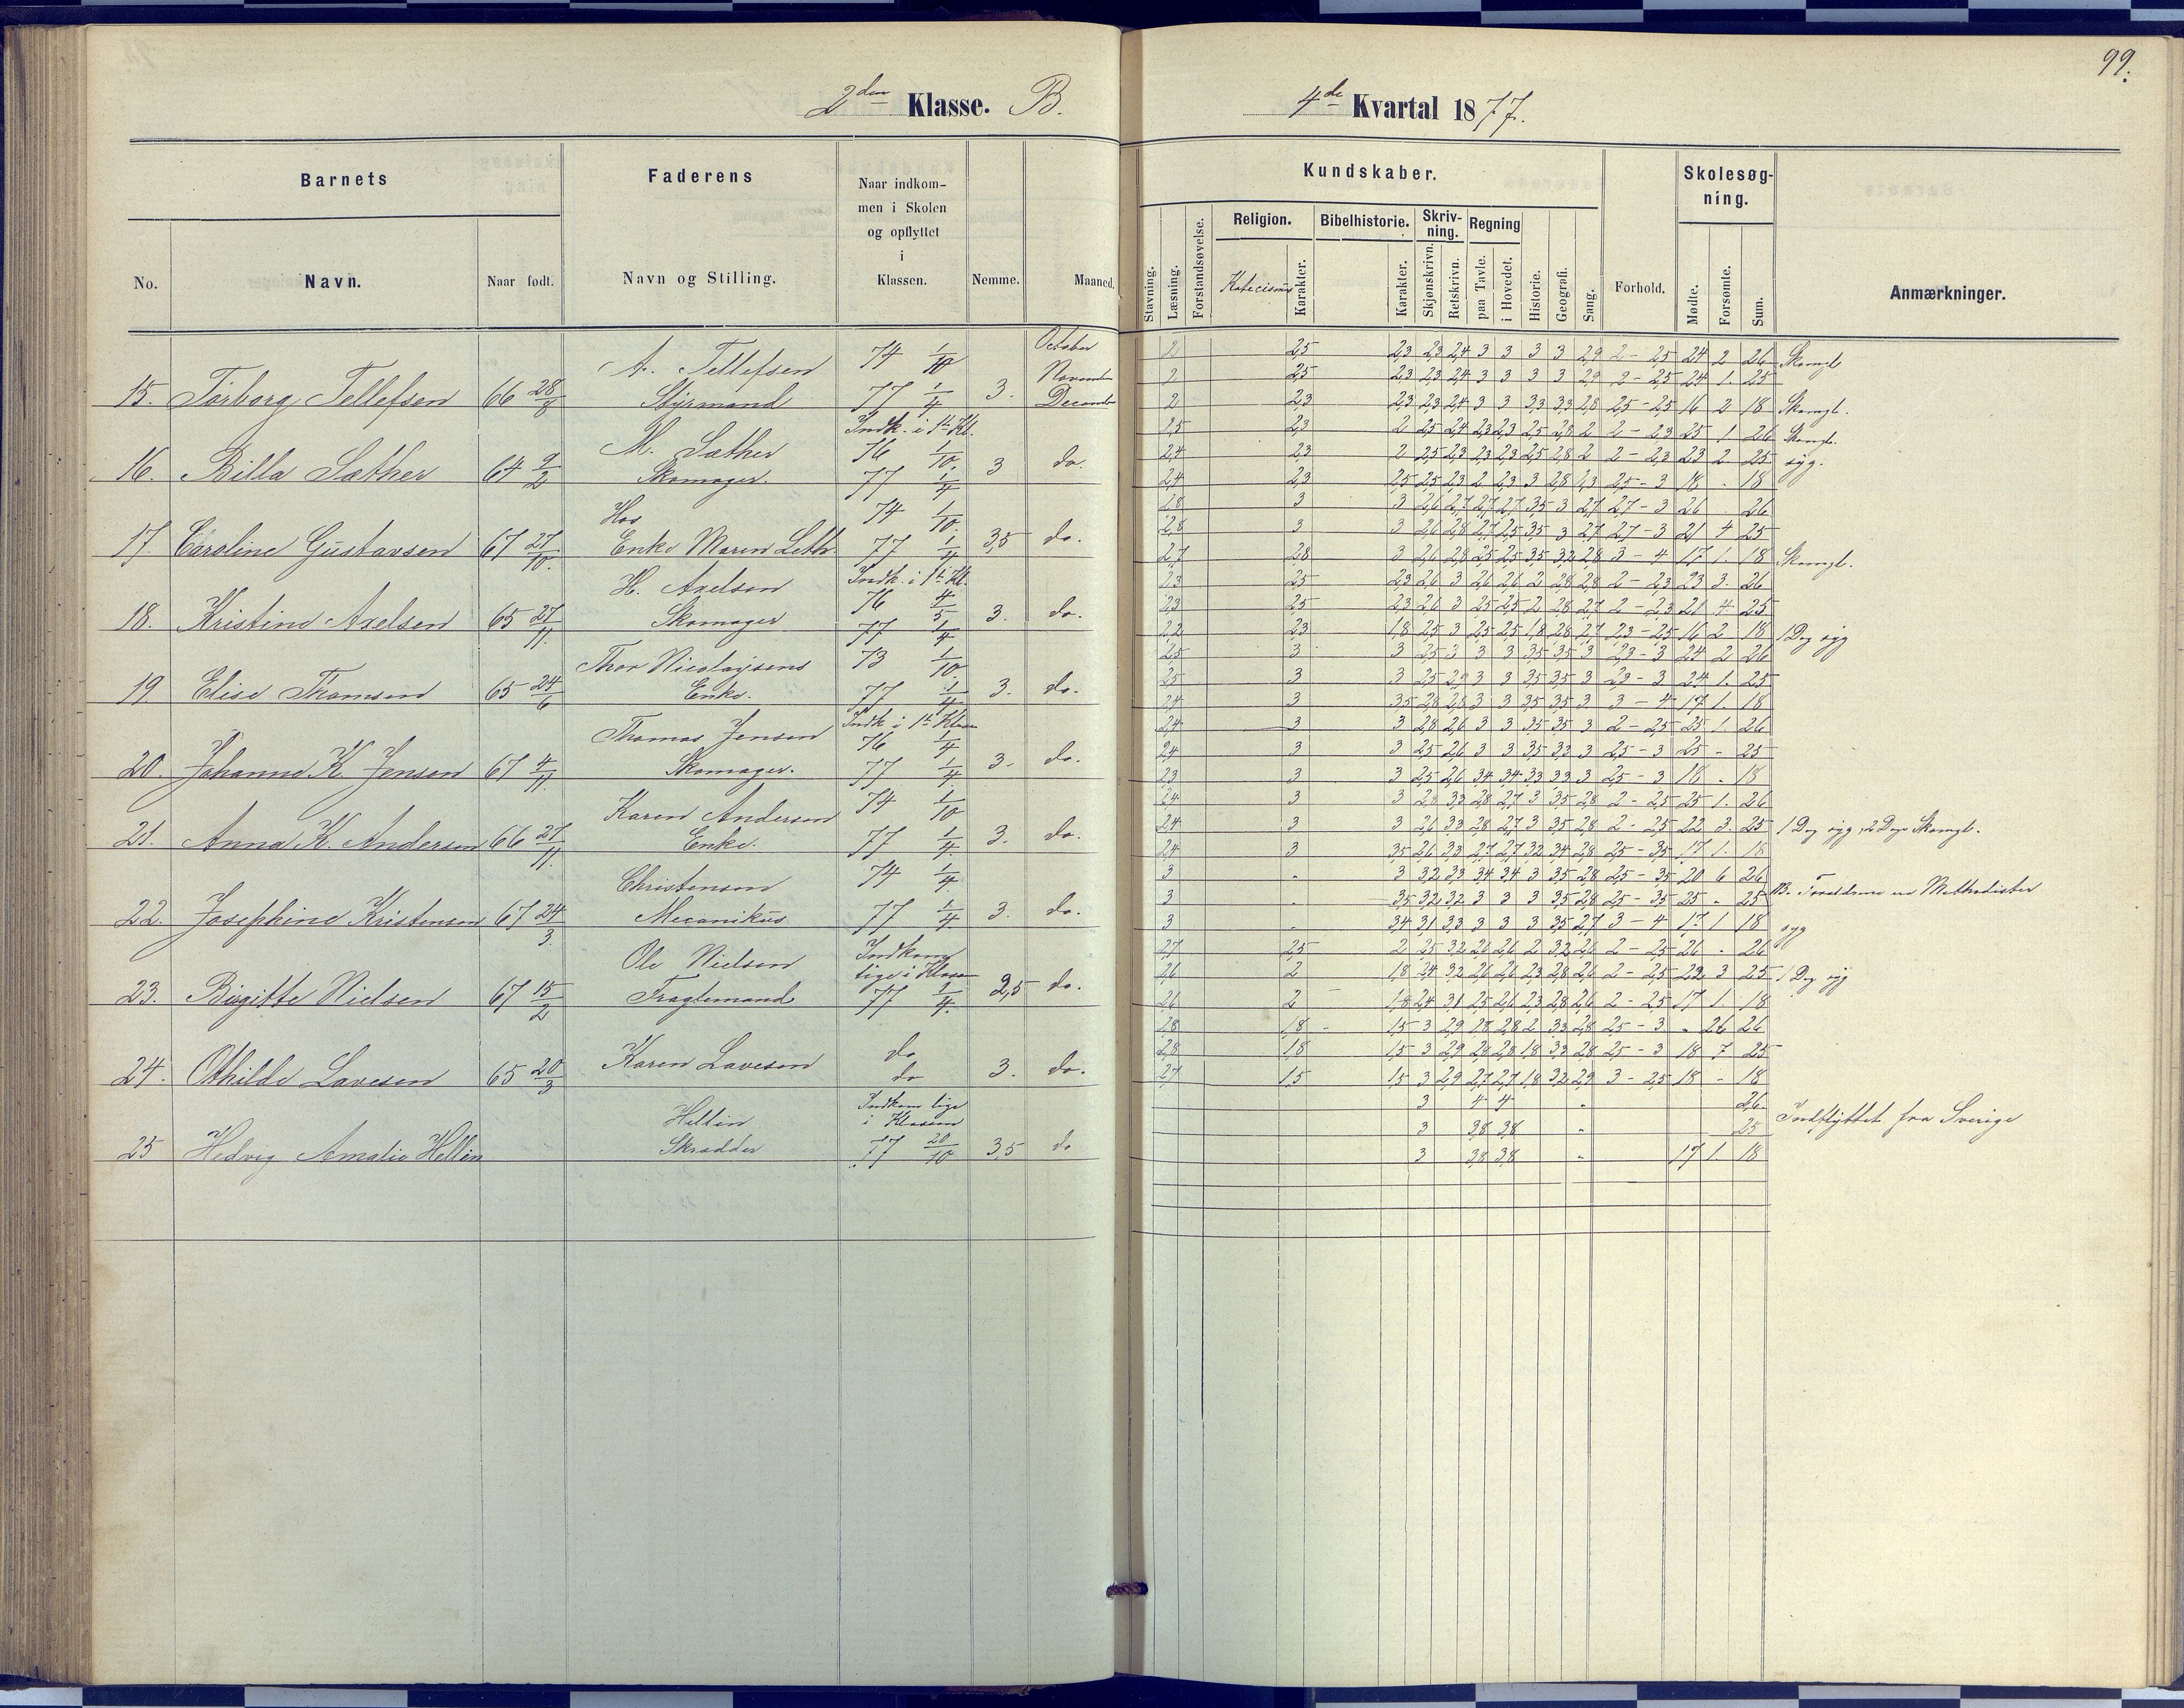 99.
2den Klasse. B.
4de Kvartal 1877.
Barnets
Faderens
Naar indkom-
men i Skolen
og opflyttet
i
Klassen.
No.
Navn.
Naar født.
Navn og Stilling.
Nemme.
Maaned.
Kundskaber.
Skolesøg-
ning.
Religion.
Bibelhistorie.
Skriv-
ning.
Regning
Stavning.
Læsning.
Forstandsøvelse.
Katecismus
Karakter.
Karakter.
Skjønskrivn.
Retskrivn.
paa Tavle.
i Hovedet.
Historie.
Geografi.
Sang.
Forhold.
Mødte.
Forsømte.
Sum.
Anmærkninger.
15. Torborg Tellefsen 66 28/8 A. Tellefsen Styrmand 74 1/10 77 1/4 3. October November December
2 2,5 2,3 2,3 2,4 3 3 3 3 2,9 2 - 2,5 24 2 26 Skomgl
2 2,5 2,3 2,3 2,4 3 3 3 3 2,9 2 - 2,5 24 1. 25
2 2,3 2,3 2,3 2,4 3 3 3,3 3,3 2,8 2,5 - 2,5 16 2 18 Skomgl.
16. Billa Sæther 64 9/2 M. Sæther Skomager. Indk. i 1te Kl. 76 1/10. 77 1/4 3 do.
2,5 2,3 2 2,5 2,4 2,3 2,3 2,5 2,8 2 2 - 2,3 25 1 26 Skomgl.
2,4 2,3 2 2,5 2,3 2,3 2,3 2,5 2,8 2 2 - 2,3 23 2 25 syg.
2,4 2,3 2,5 2,5 2,3 2 2,3 3 2,8 2,3 2,5 - 3 18 - 18
17. Caroline Gustavsen 67 27/10. Hos Enke Maren Leth 74 1/10. 77 1/4 3,5 do.
2,8 3 3 2,6 2,7 2,7 2,7 3,5 3 2,7 2,7 - 3 26 26
2,8 3 3 2,6 2,8 2,7 2,5 3,5 3 2,7 2,7 - 3 21 4 25
2,7 2,8 3 2,6 2,8 2,5 2,5 3,5 3,2 2,8 3 - 4 17 1. 18 Skomgl.
18. Kristine Axelsen 65 27/11. H. Axelsen Skomager Indk. i 1te Kl. 76 4/5 77 1/4 3. do.
2,3 2,5 2,3 2,6 3 2,6 2,6 2 2,8 2,8 2 - 2,3 23 3. 26
2,3 2,5 2,3 2,6 3 2,5 2,5 2 2,8 2,7 2 - 2,3 21 4 25
2,2 2,3 1,8 2,5 3 2,5 2,5 1,8 2,8 2,7 2,3 - 2,5 16 2 18 1 Dag syg
19. Elise Thomsen 65 24/6 Thor Nicolaysens Enke. 73 1/10. 77 1/4 3. do.
2,5 3 3 2,5 3 3 3 3,5 3,5 3 2,3 - 3 24 2 26
2,5 3 3 2,5 2,9 3 3 3,5 3,5 3 2,3 - 3 24 1. 25
2,4 3 3,5 2,8 2,8 3 3 3,5 3,5 3 3 - 4 17 1. 18
20. Johanne K. Jensen 67 4/11. Thomas Jensen Skomager. Indk i 1te Klasse 76 1/4 77 1/4. 3. do.
2,4 3 3 2,8 2,6 3 3 3,5 3,5 3 2 - 2,5 25 1. 26
2,4 3 3 2,5 2,6 3 3 3,5 3,3 3 2,5 - 3 25 - 25
2,3 3 3 2,5 2,6 3,4 3,4 3,3 3,3 3 2,5 - 3 18 - 18
21. Anna K. Andersen 66 27/11. Karen Andersen Enke. 74 1/10 77 1/4. 3. do.
2,4 3 3 2,8 3,3 2,8 2,7 3 3,5 2,8 2 - 2,5 25 1. 26
2,4 3 3 2,6 3,3 2,8 2,7 3 3,5 2,8 2 - 2,5 22 3. 25 1 Dag syg, 2 Dage Skomgl.
2,4 3 3,5 2,6 3,3 2,7 2,7 3,2 3,4 2,8 2,5 - 3,5 17 1. 18
22. Josephine Kristensen 67 24/3. Christensen Mecanikus 74 1/4. 77 1/4. 3. do.
3 - 3 3,2 3,3 3,4 3,4 3 3,5 2,8 2,5 - 3,5 20 6 26 B. Forældrene er Methodister
3 - 3,5 3,2 3,2 3 3 3 3,5 2,8 2,5 - 3,5 25 - 25
3 - 3,4 3,1 3,3 3 3 3 3,5 2,7 3 - 4 17 1 18 syg
23. Birgitte Nielsen 67 15/2 Ole Nielsen Fragtemand Indkom lige i Klassen 77 1/4. 2,5 do.
2,7 2,5 2 2,5 3,2 2,6 2,6 2 3,2 2,6 2 - 2,5 26 - 26
2,6 2 1,8 2,4 3,2 2,6 2,6 2,3 2,8 2,6 2 - 2,5 22 3 25 1 Dag syg
2,6 2 1,8 2,4 3,1 2,5 2,6 2,3 2,8 2,6 2 - 2,5 17 1. 18
24. Othilde Lavesen 65 20/3 Karen Lavesen do do 3. do.
2,8 1,8 1,5 3 2,9 2,8 2,8 2 3,3 2,8 2,5 - 3 - 26 26
2,8 1,8 1,5 3 2,9 2,8 2,8 1,8 3,3 2,8 2,5 - 3 18 7 25
2,7 1,5 1,5 3 2,9 2,7 2,7 1,8 3,2 2,9 3 - 2,5 18 - 18
25 Hedvig Amalie Hellin Hellin Skrædder Indkom lige i Klassen 77 20/10 3,5 do
3 4 4 - 26 Indflyttet fra Sverige
3 3,8 3,8 - 25
3 3,8 3,8 - 17 1. 18